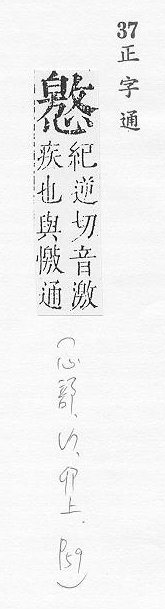 37
正字通
紀逆切音激
疾也與憿通
(心部、卯上. P59)